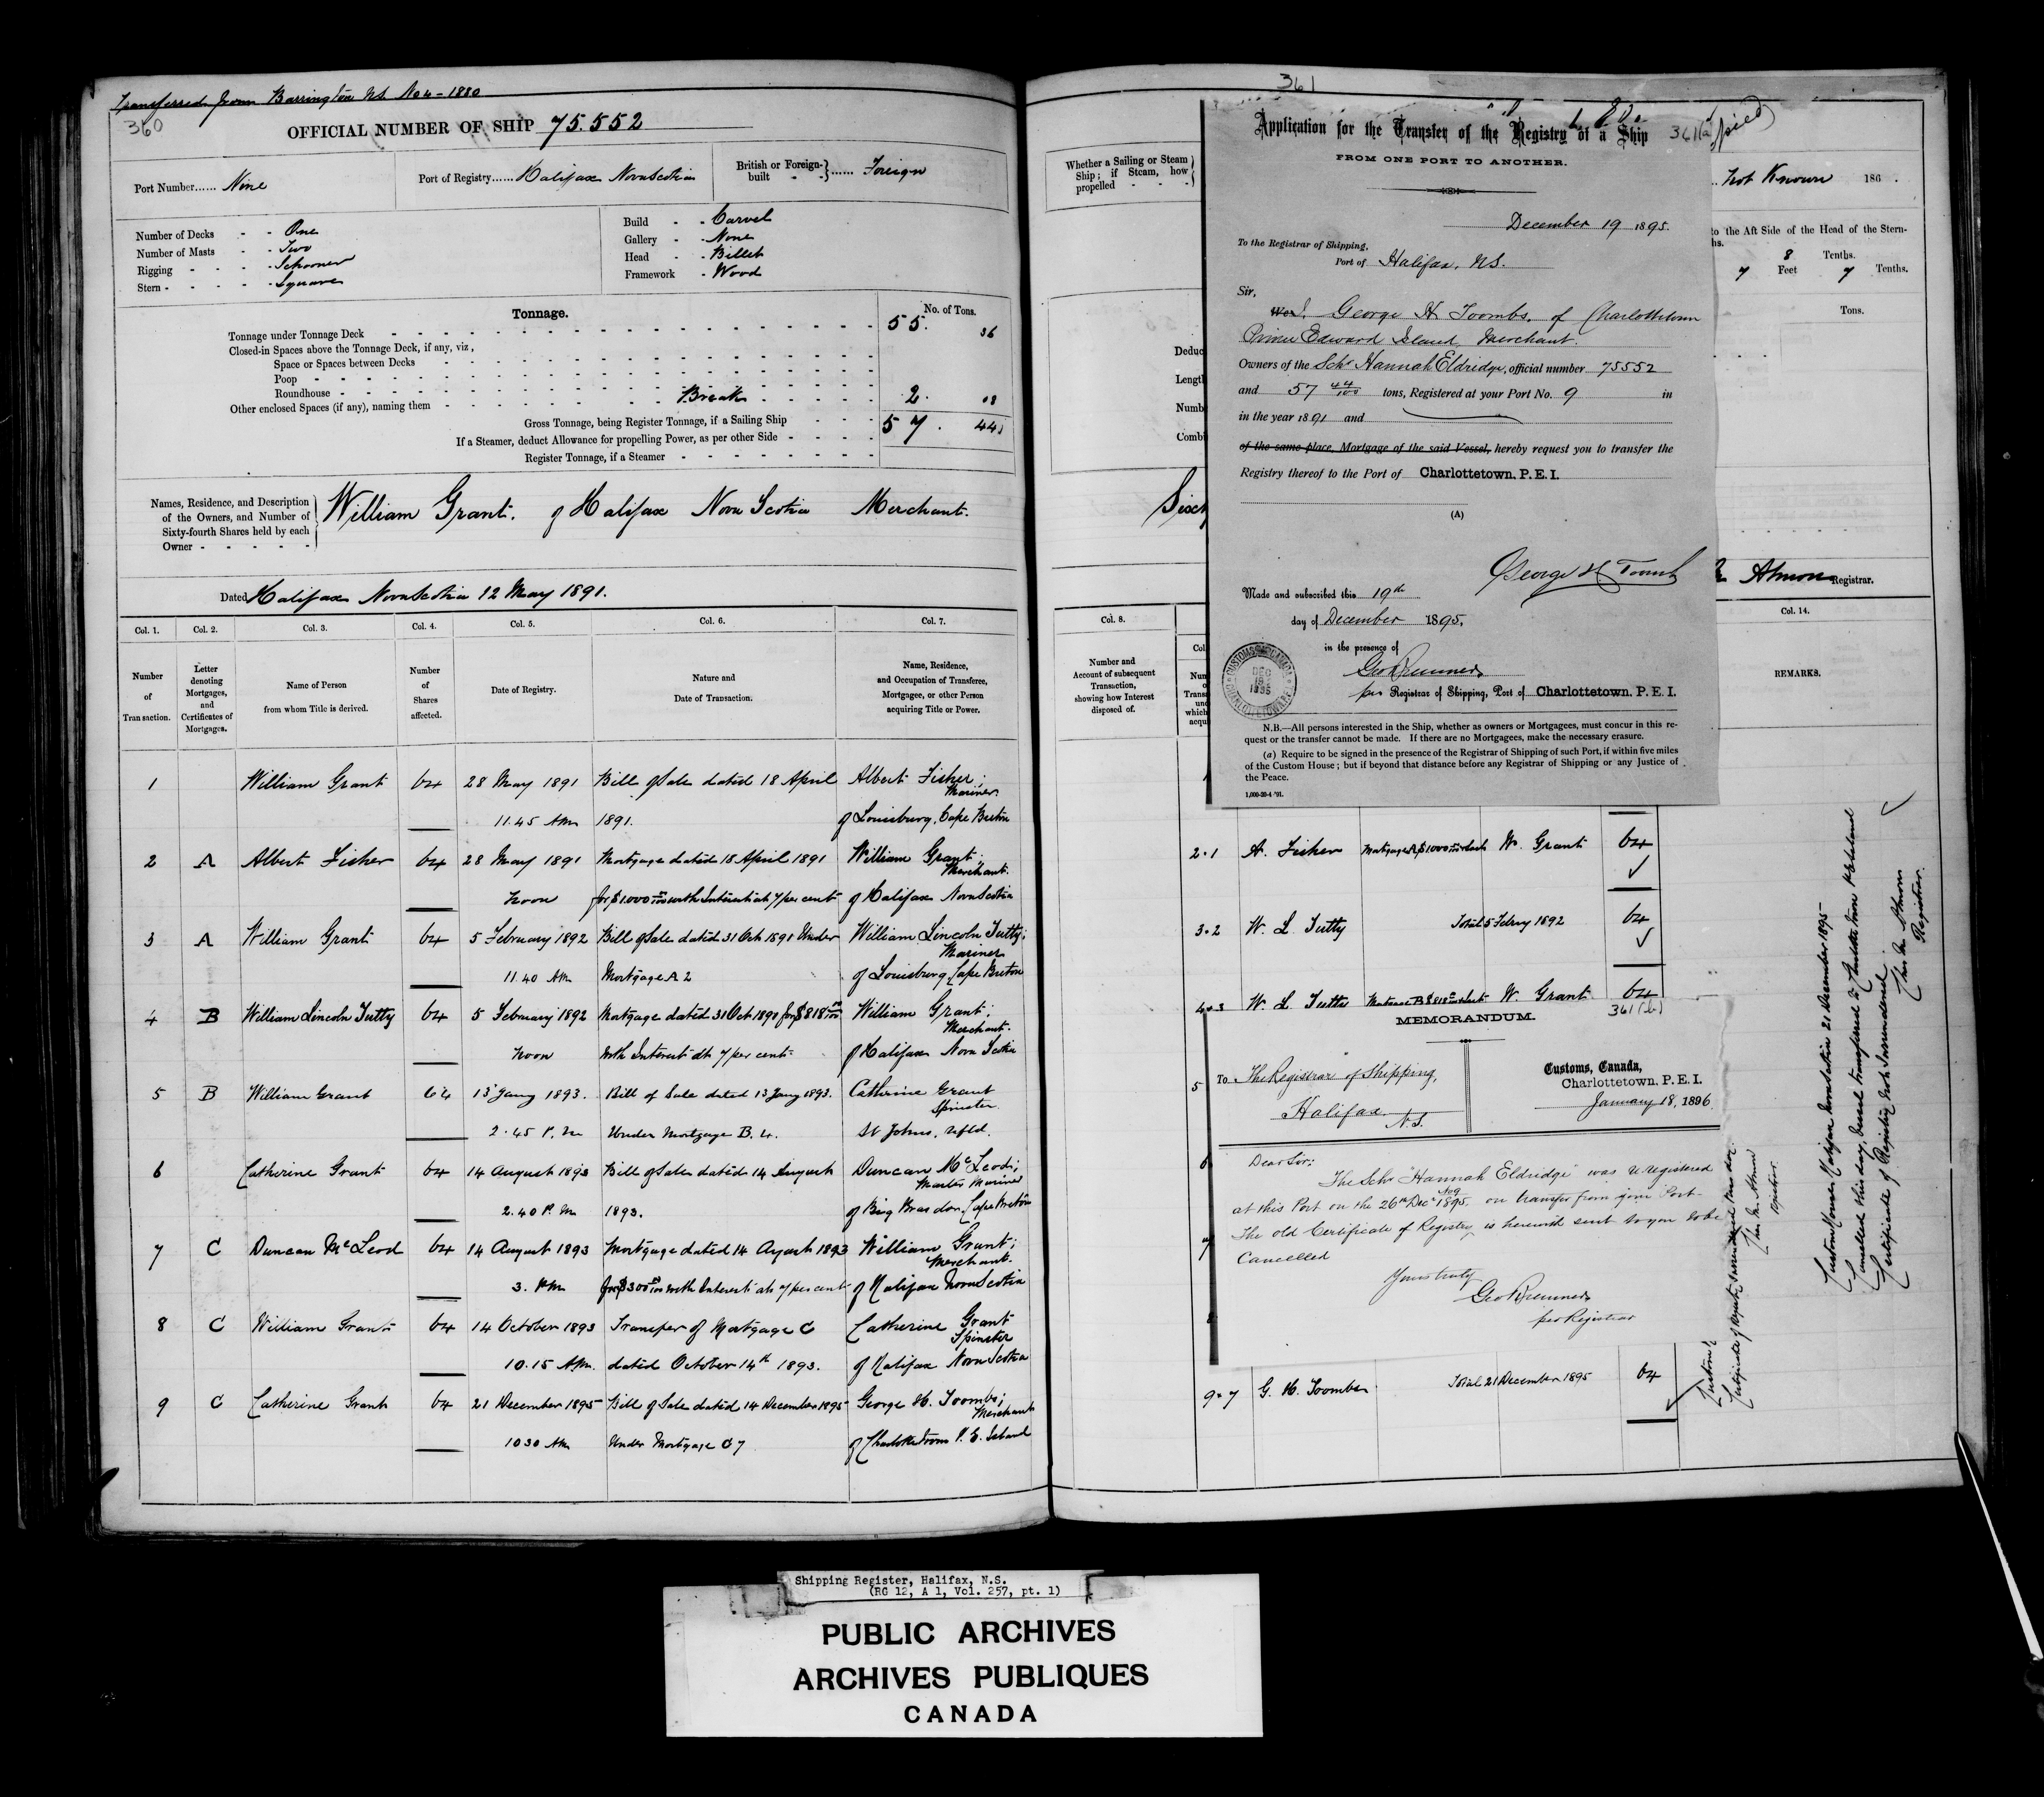 Transferred from Barrington N.S. No 4 - 1880
360
OFFICIAL NUMBER OF SHIP 75.552
Port Number...... Nine
Port of Registry...... Halifax Nova Scotia
British or Foreign-built - - } ...... Foreign
Number of Decks - - One
Number of Masts - - Two
Rigging - - - - Schooner
Stern - - - - - Square
Build - - Carvel
Gallery - - None
Head - - Billet
Framework - Wood
Tonnage.
No. of Tons.
Tonnage under Tonnage Deck 55. 36
Closed-in Spaces above the Tonnage Deck, if any, viz,
Space or Spaces between Decks
Poop
Roundhouse
Other enclosed Spaces (if any), naming them Break 2. 08
Gross Tonnage, being Register Tonnage, if a Sailing Ship 57. 44
If a Steamer, deduct Allowance for propelling Power, as per other Side
Register Tonnage, if a Steamer
Names, Residence, and Description
of the Owners, and Number of
Sixty-fourth Shares held by each
Owner - - - - -
William Grant. of Halifax Nova Scotia Merchant.
Dated Halifax Nova Scotia 12 May 1891.
Col. 1. Col. 2. Col. 3. Col. 4. Col. 5. Col. 6. Col. 7.
Number of Transaction.
Letter denoting Mortgages, and Certificates of Mortgages.
Name of Person from whom Title is derived.
Number of Shares affected.
Date of Registry.
Nature and Date of Transaction.
Name, Residence, and Occupation of Transferee, Mortgagee, or other Person acquiring Title or Power.
1 William Grant 64 28 May 1891 Bill of Sale dated 18 April Albert Fisher; Mariner
11.45 AM 1891. of Louisburg, Cape Breton
2 A Albert Fisher 64 28 May 1891 Mortgage dated 18 April 1891 William Grant; Merchant.
noon for $1000 00/100 with Interest at 7 per cent of Halifax Nova Scotia
3 A William Grant 64 5 February 1892 Bill of Sale dated 31 Oct 1891 Under William Lincoln Tutty; Mariner
11.40 AM Mortgage A 2 of Louisburg Cape Breton
4 B William Lincoln Tutty 64 5 February 1892 Mortgage dated 31 Oct 1891 for $818 00/100 William Grant; Merchant.
noon with Interest at 7 per cent of Halifax Nova Scotia
5 B William Grant 64 13 Jany 1893. Bill of Sale dated 13 Jany 1893. Catherine Grant Spinster
2.45 P.M Under Mortgage B. 4. St Johns, Nfld.
6 Catherine Grant 64 14 August 1893 Bill of Sale dated 14 August Duncan McLeod; Master Mariner
2.40 P.M 1893. of Big Bras dor, Cape Breton
7 C Duncan McLeod 64 14 August 1893 Mortgage dated 14 August 1893 William Grant; Merchant.
3. PM for $300 00/100 with Interest at 7 per cent of Halifax Nova Scotia
8 C William Grant 64 14 October 1893 Transfer of Mortgage C Catherine Grant Spinster
10.15 AM. dated October 14th 1893. of Halifax Nova Scotia
9 C Catherine Grant 64 21 December 1895 Bill of Sale dated 14 December 1895 George H. Toombs; Merchant
10 30 AM Under Mortgage C 7 of Charlottetown P. E. Island
361
Whether a Sailing or Steam
Ship; if Steam, how
propelled - - -
Not Known 186 .
to the Aft Side of the Head of the Stern-
8 Tenths.
7 Feet 7 Tenths.
Tons.
Almon Registrar.
Col. 8.
Col. 14.
Number and
Account of subsequent
Transaction,
showing how Interest
disposed of.
REMARKS.
361(a)
Application for the Transfer of the Registry of a Ship
FROM ONE PORT TO ANOTHER.
December 19 1895.
To the Registrar of Shipping,
Port of Halifax, N.S.
Sir,
We I. George H Toombs, of Charlottetown
Prince Edward Island, Merchant.
Owners of the Schr Hannah Eldridge, official number 75552
and 57 44/100 tons, Registered at your Port No. 9 in
in the year 1891 and
of the same place, Mortgage of the said Vessel, hereby request you to transfer the
Registry thereof to the Port of Charlottetown, P. E. I.
(A)
George H Toombs
Made and subscribed this 19th
day of December 1895.
in the presence of
per Registrar of Shipping, Port of Charlottetown, P. E. I.
DEC
19
1895
N.B.—All persons interested in the Ship, whether as owners or Mortgagees, must concur in this re-
quest or the transfer cannot be made. If there are no Mortgagees, make the necessary erasure.
(a) Require to be signed in the presence of the Registrar of Shipping of such Port, if within five miles
of the Custom House; but if beyond that distance before any Registrar of Shipping or any Justice of
the Peace.
1,000-20-4 '91.
2.1 A. Fisher Mortgage A $1000 W. Grant 64
3.2 W. L. Tutty Total 5 Febry 1892 64
4.3 W. L. Tutty Mortgage B $818 W. Grant 64
361(b)
MEMORANDUM.
5
To The Registrar of Shipping,
Halifax.
N.S.
Customs, Canada,
Charlottetown, P. E. I.
January 18, 1896
6
Dear Sir:
The Schr "Hannah Eldridge" was re registered
at this Port on the 26th Decr 1895, on transfer from your Port.
The old Certificate of Registry is herewith sent to you to be
Cancelled
Yours truly
per Registrar
9.7 G. H. Toombs Total 21 December 1895 64
Custom House, Halifax Nova Scotia 21 December 1895
Cancelled this day, Vessel transferred to Charlottetown P E Island
Certificate of Registry not surrendered.
Registrar.
Shipping Register, Halifax, N.S.
(RG 12, A 1, Vol. 257, pt. 1)
PUBLIC ARCHIVES
ARCHIVES PUBLIQUES
CANADA